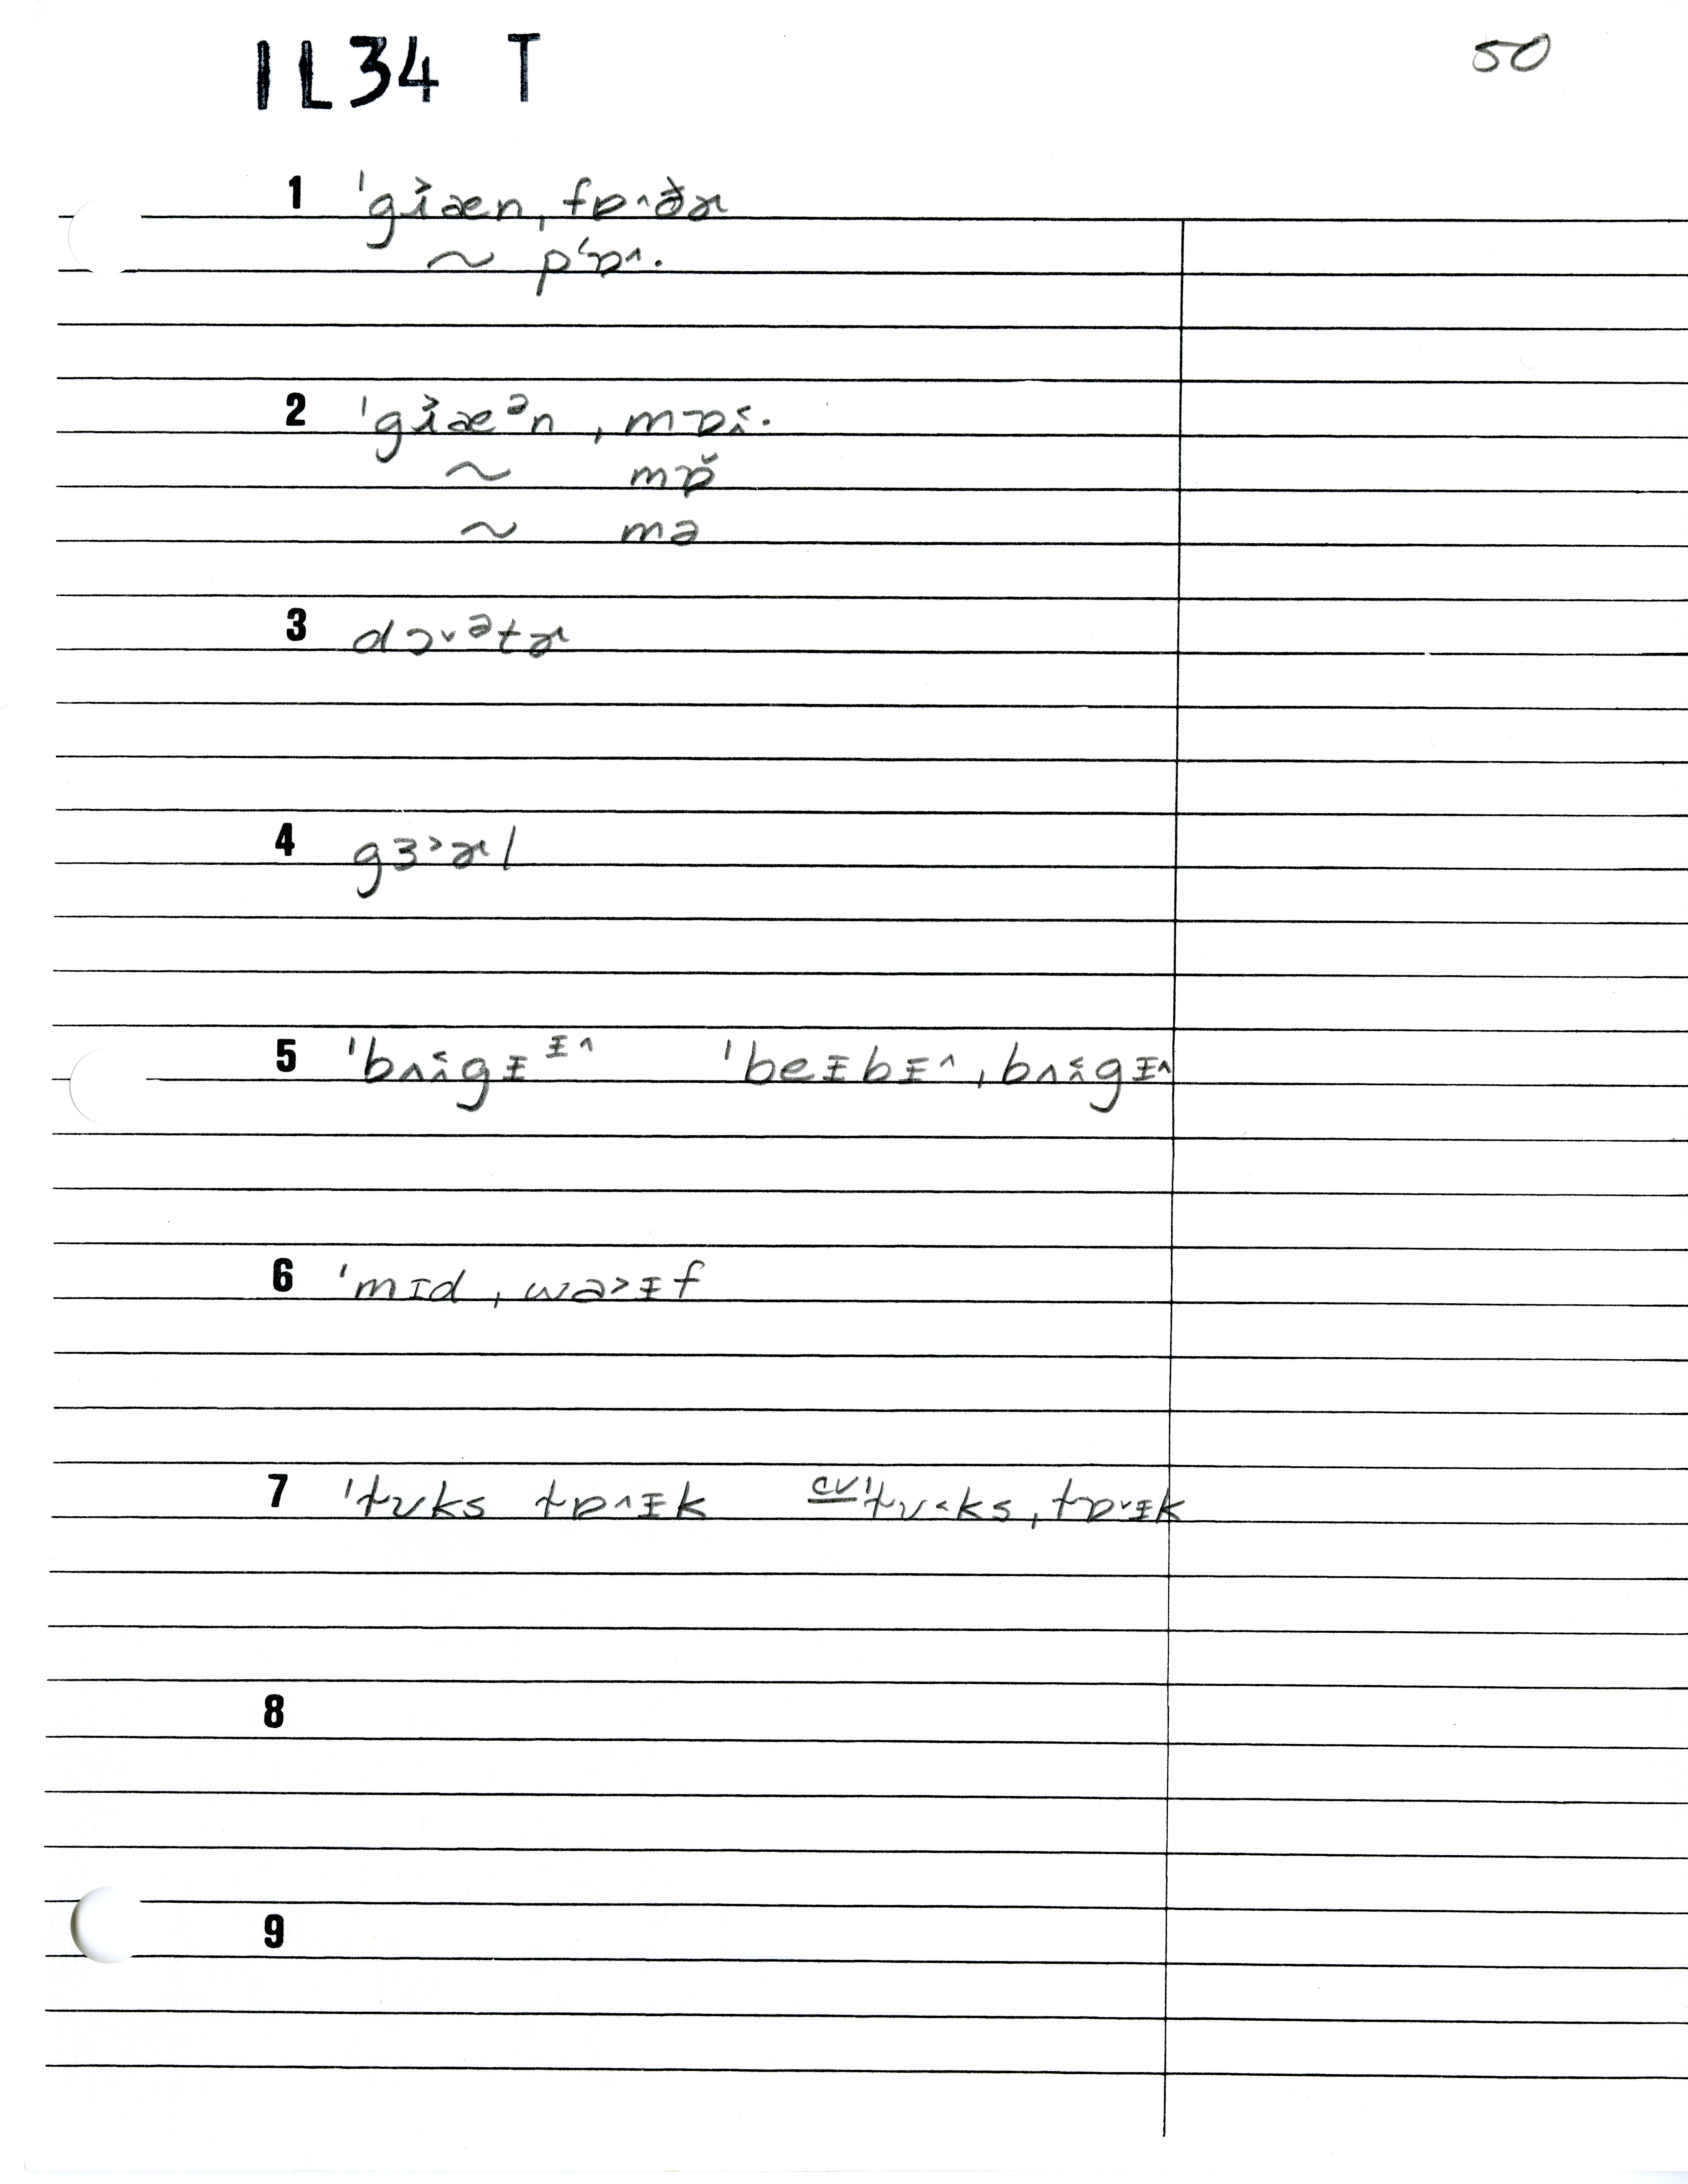 IL34 T
50
1 ˈgɨ˃æn, fɒ˄ðɚ
~ pʻɒ˄·
2 ˈgɨ˃æᵊn, mɒɨ·
~ mɒ̆
~ mə
3 dɔ˅ᵊtɚ
4 gɜ˃ɚl
5 ˈbʌɨgᵻᵻ˄ ˈbeᵻbᵻ˄, bʌɨgᵻ˄
6 ˈmɪd, wa˃ᵻf
7 ˈtʊks tɒ˄ᵻk cvˈtʊ˂ks, tɒ˅ᵻk
8
9